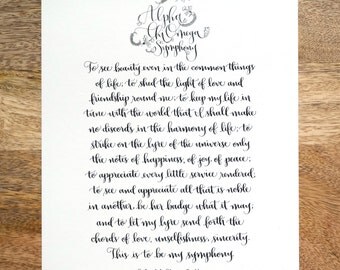 Alpha
Chi Omega
Symphony
To see beauty even in the common things
of life; to shed the light of love and
friendship round me; to keep my life in
tune with the world that I shall make
no discords in the harmony of life; to
strike on the lyre of the universe only
the notes of happiness, of joy of peace;
to appreciate every little service rendered;
to see and appreciate all that is noble
in another, be her badge what it may;
and to let my lyre send forth the
chords of love, unselfishness, sincerity.
This is to be my symphony.